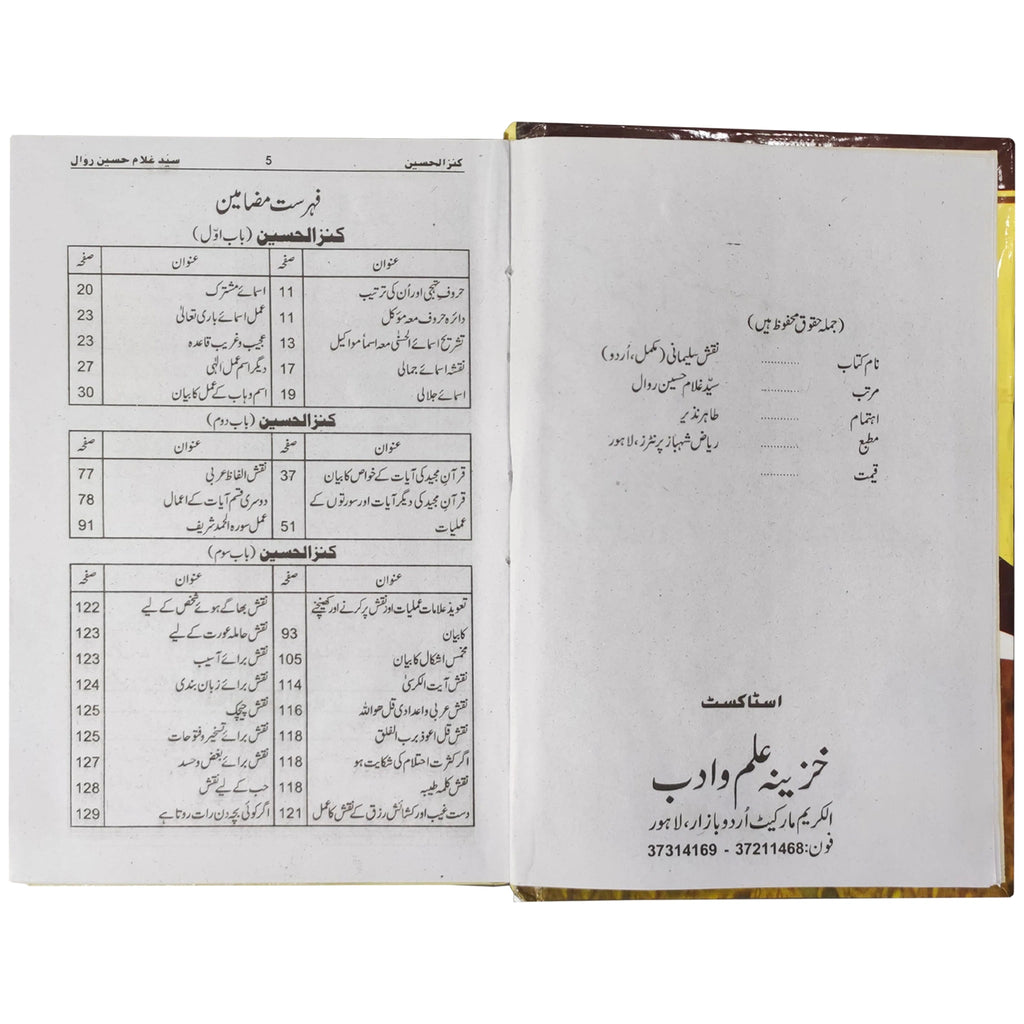 (جملہ حقوق محفوظ ہیں)
نام کتاب ............ نقش سلیمانی (مکمل، اُردو)
مرتب ............ سیّد غلام حسین روال
اہتمام ............ طاہر نذیر
مطبع ............ ریاض شہباز پرنٹرز، لاہور
قیمت ............
اسٹاکسٹ
خزینہ علم و ادب
الکریم مارکیٹ اُردو بازار، لاہور
فون: 37211468 - 37314169
کنز الحسین 5 سیّد غلام حسین روال
فہرست مضامین
کنز الحسین (باب اوّل)
عنوان صفحہ عنوان صفحہ
حروف تہجی اور اُن کی ترتیب 11 اسمائے مشترک 20
دائرہ حروف معہ مؤکل 11 عمل اسمائے باری تعالیٰ 23
تشریح اسمائے الحسنٰی معہ اسماٗ مواکیل 13 عجیب و غریب قاعدہ 23
نقشہ اسمائے جمالی 17 دیگر اسم عمل الٰہی 27
اسمائے جلالی 19 اسم وہاب کے عمل کا بیان 30
کنز الحسین (باب دوم)
عنوان صفحہ عنوان صفحہ
قرآنِ مجید کی آیات کے خواص کا بیان 37 نقش الفاظ عربی 77
قرآنِ مجید کی دیگر آیات اور سورتوں کے دوسری قسم آیات کے اعمال 78
عملیات 51 عمل سورہ الحمد شریف 91
کنز الحسین (باب سوم)
عنوان صفحہ عنوان صفحہ
تعویذ علامات عملیات اور نقش پر کرنے اور کھینچنے نقش بھاگے ہوئے شخص کے لیے 122
کا بیان 93 نقش حاملہ عورت کے لیے 123
مخمس اشکال کا بیان 105 نقش برائے آسیب 123
نقش آیت الکرسیٰ 114 نقش برائے زبان بندی 124
نقش عربی و اعدادی قل ھو اللہ 116 نقش چیچک 125
نقش قل اعوذ برب الفلق 118 نقش برائے تسخیر و فتوحات 125
اگر کثرت احتلام کی شکایت ہو 118 نقش برائے بغض و حسد 127
نقش کلمہ طیبہ 118 حب کے لیے نقش 128
دست غیب اور کشائش رزق کے نقش کا عمل 121 اگر کوئی بچہ دن رات روتا ہے 129